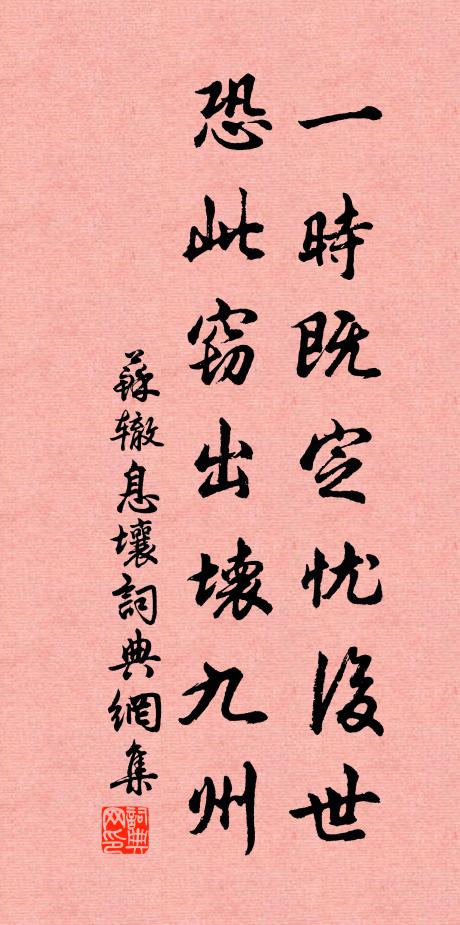 一時既定忧後世
恐此窃出壊九州
蘇辙息壤詞典網集
詞典网印